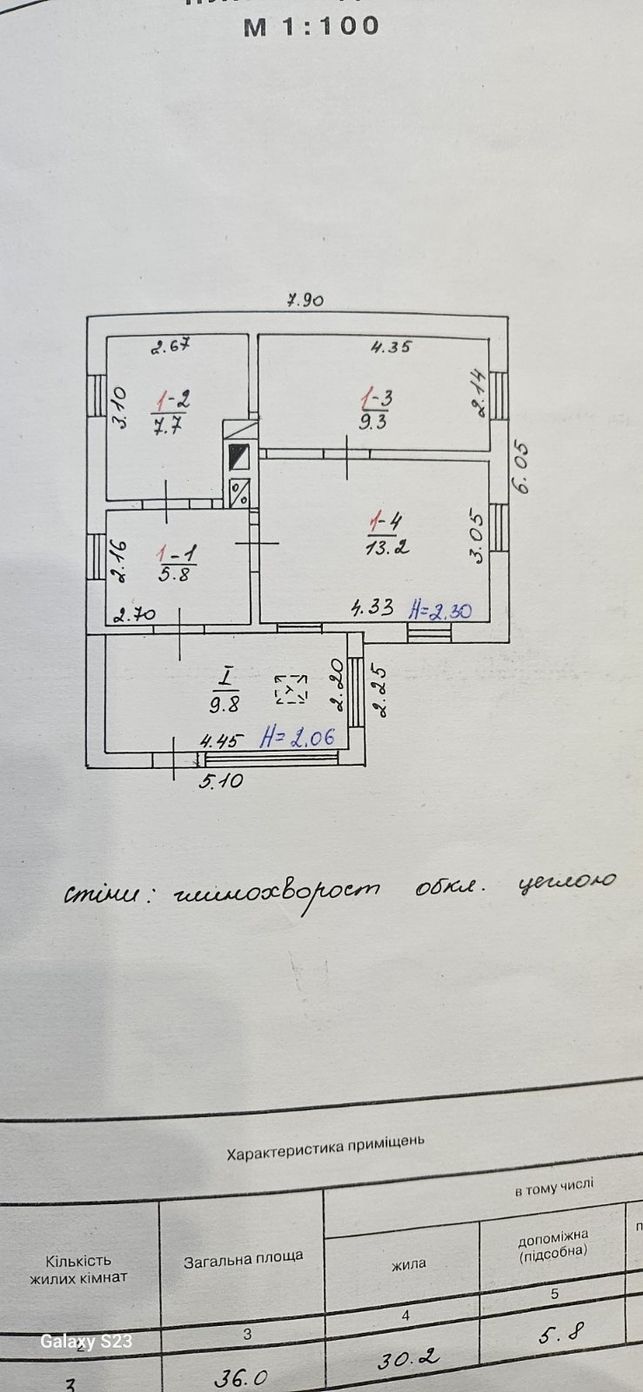 М 1:100
7.90
2.67
4.35
3.10
1-2
7.7
1-3
9.3
2.14
6.05
2.16
1-1
5.8
1-4
13.2
3.05
2.70
4.33 H=2.30
I
9.8
2.20
2.25
4.45 H=2.06
5.10
стіни: глинохворост обкл. цеглою
Характеристика приміщень
в тому числі
Кількість
жилих кімнат
Загальна площа
жила
допоміжна
(підсобна)
3
4
5
3
36.0
30.2
5.8
Galaxy S23